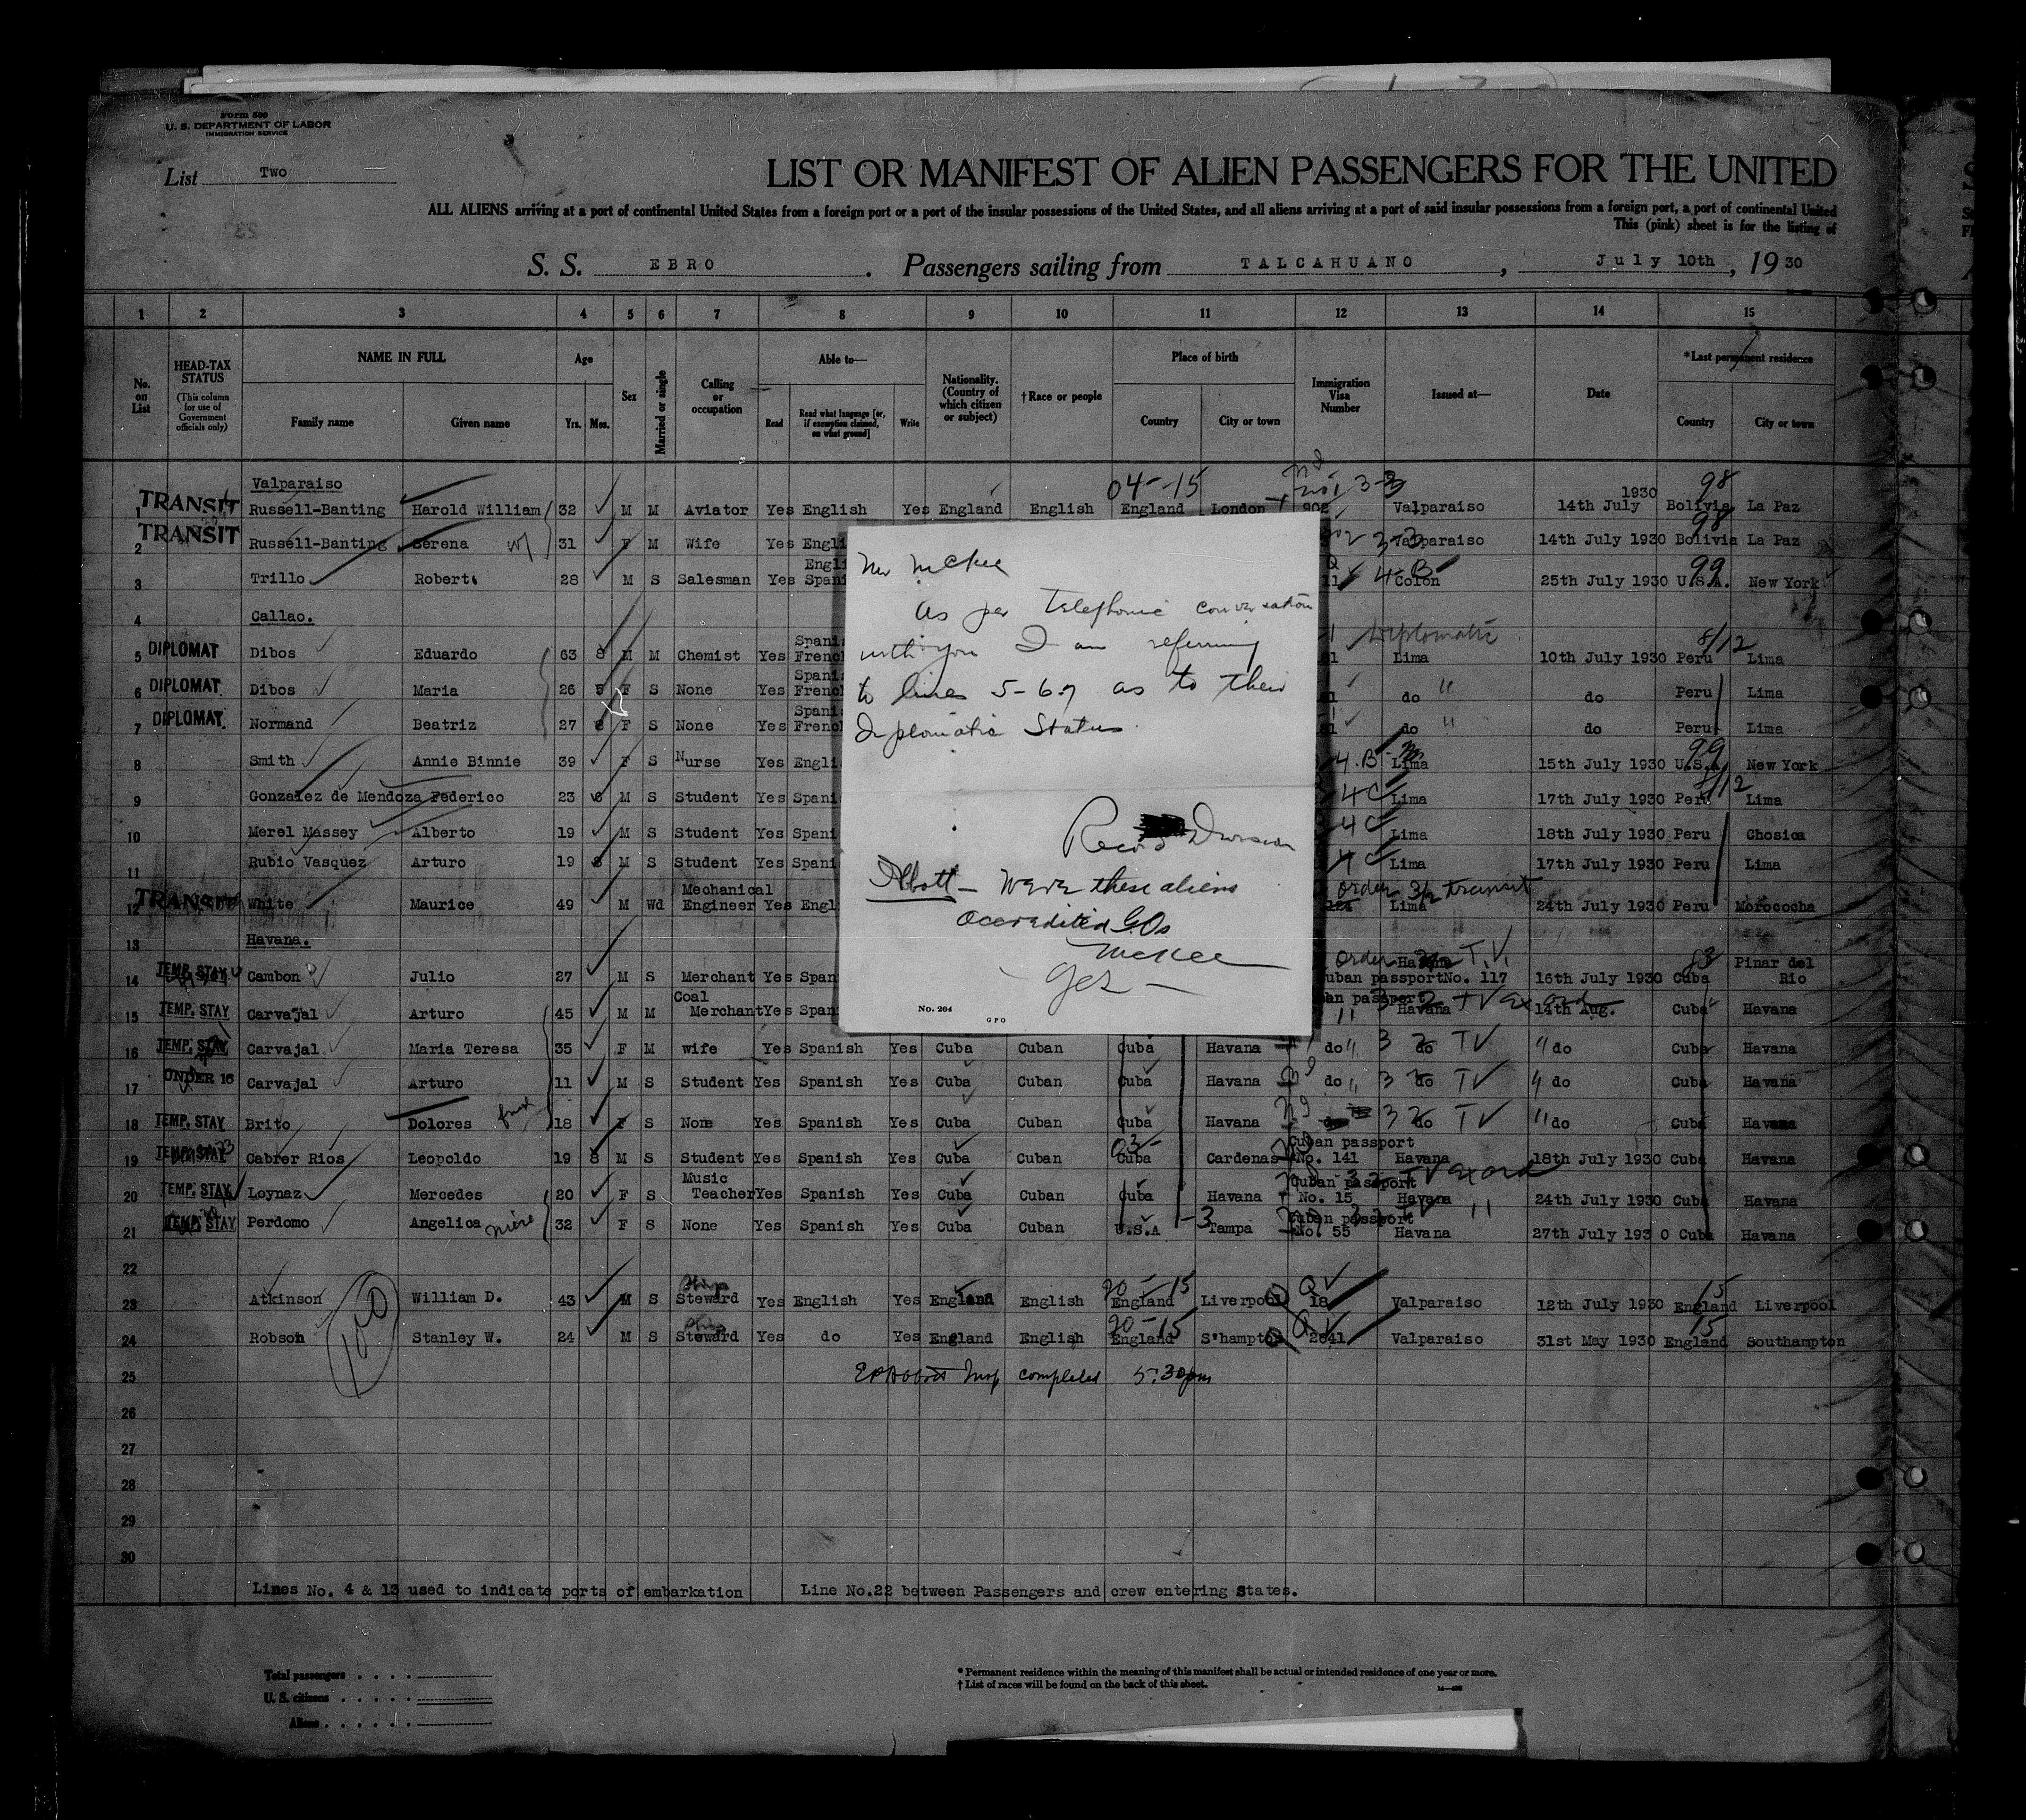 Form 500
U. S. DEPARTMENT OF LABOR
IMMIGRATION SERVICE
List Two
LIST OR MANIFEST OF ALIEN PASSENGERS FOR THE UNITED
ALL ALIENS arriving at a port of continental United States from a foreign port or a port of the insular possessions of the United States, and all aliens arriving at a port of said insular possessions from a foreign port, a port of continental United
This (pink) sheet is for the listing of
S. S. EBRO. Passengers sailing from TALCAHUANO, July 10th, 1930
1 2 3 4 5 6 7 8 9 10 11 12 13 14 15
No. on List
HEAD-TAX STATUS (This column for use of Government officials only)
NAME IN FULL Family name Given name
Age Yrs. Mos.
Sex
Married or single
Calling or occupation
Able to— Read Read what language [or, if exemption claimed, on what ground] Write
Nationality. (Country of which citizen or subject)
† Race or people
Place of birth Country City or town
Immigration Visa Number
Issued at—
Date
* Last permanent residence Country City or town
Valparaiso 04-15 98
1 TRANSIT Russell-Banting Harold William 32 M M Aviator Yes English Yes England English England London 902 Valparaiso 14th July 1930 Bolivia La Paz
2 TRANSIT Russell-Banting Serena 31 F M Wife Yes Engli 3-3 Valparaiso 14th July 1930 98 Bolivia La Paz
3 Trillo Robert 28 M S Salesman Yes Engli Spani 4-B Colon 25th July 1930 99 U.S.A. New York
4 Callao.
5 DIPLOMAT Dibos Eduardo 63 8 M M Chemist Yes Spani French Diplomatic Lima 10th July 1930 8/12 Peru Lima
6 DIPLOMAT. Dibos Maria 26 5 F S None Yes Spani French do " do Peru Lima
7 DIPLOMAT. Normand Beatriz 27 8 F S None Yes Spani French do " do Peru Lima
8 Smith Annie Binnie 39 F S Nurse Yes Engli 4-B Lima 15th July 1930 99 U.S.A. New York
9 Gonzalez de Mendoza Federico 23 6 M S Student Yes Spani 4C Lima 17th July 1930 8/12 Peru Lima
10 Merel Massey Alberto 19 M S Student Yes Spani 4C Lima 18th July 1930 Peru Chosica
11 Rubio Vasquez Arturo 19 8 M S Student Yes Spani 4C Lima 17th July 1930 Peru Lima
12 TRANSIT White Maurice 49 M Wd Mechanical Engineer Yes Engl order 3/2 transit 121 Lima 24th July 1930 Peru Morococha
13 Havana.
14 TEMP. STAY Cambon Julio 27 M S Merchant Yes Span order Havana T.V. Cuban passport No. 117 16th July 1930 83 Cuba Pinar del Rio
15 TEMP. STAY Carvajal Arturo 45 M M Coal Merchant Yes Span an passport 11 Havana 14th Aug. Cuba Havana
16 TEMP. STAY Carvajal Maria Teresa 35 F M wife Yes Spanish Yes Cuba Cuban Cuba Havana do 3 2 do TV do Cuba Havana
17 UNDER 16 Carvajal Arturo 11 M S Student Yes Spanish Yes Cuba Cuban Cuba Havana do 3 2 do TV do Cuba Havana
18 TEMP. STAY Brito Dolores 18 F S None Yes Spanish Yes Cuba Cuban Cuba Havana do 3 2 do TV do Cuba Havana
19 TEMP. STAY Cabrer Rios Leopoldo 19 8 M S Student Yes Spanish Yes Cuba Cuban 03- Cuba Cardenas Cuban passport No. 141 Havana 18th July 1930 Cuba Havana
20 TEMP. STAY Loynaz Mercedes 20 F S Music Teacher Yes Spanish Yes Cuba Cuban Cuba Havana Cuban passport No. 15 Havana 24th July 1930 Cuba Havana
21 TEMP. STAY Perdomo Angelica niece 32 F S None Yes Spanish Yes Cuba Cuban U.S.A 1-3 Tampa Cuban passport No. 55 Havana 27th July 1930 Cuba Havana
22
23 Atkinson William D. 43 M S Ships Steward Yes English Yes England English 20-15 England Liverpool Q 18 Valparaiso 12th July 1930 15 England Liverpool
24 Robson Stanley W. 24 M S Ships Steward Yes do Yes England English 20-15 England S'hampton Q 2641 Valparaiso 31st May 1930 15 England Southampton
25 Insp completed 5:30pm
26
27
28
29
30
Lines No. 4 & 13 used to indicate ports of embarkation Line No.22 between Passengers and crew entering States.
Total passengers
U. S. citizens
Aliens
* Permanent residence within the meaning of this manifest shall be actual or intended residence of one year or more.
† List of races will be found on the back of this sheet.
Mr McKee
As per telephonic conversation
with you I am referring
to lines 5-6-7 as to their
Diplomatic Status.
Record Division
Abbott — Were these aliens
accredited G.Os
McKee
Yes —
No. 204
GPO